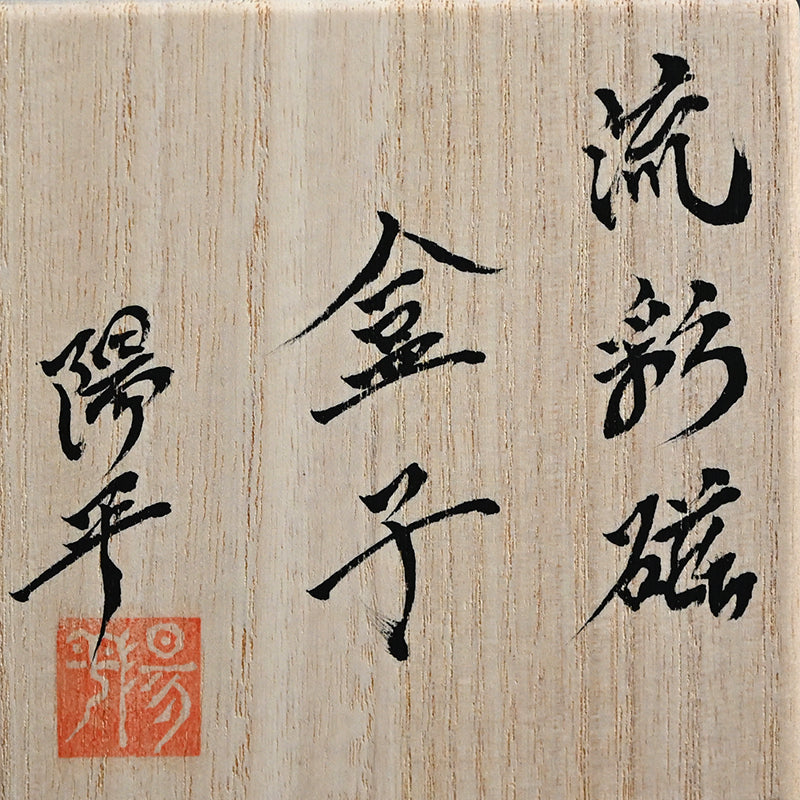 流彩磁
盒子
陽平